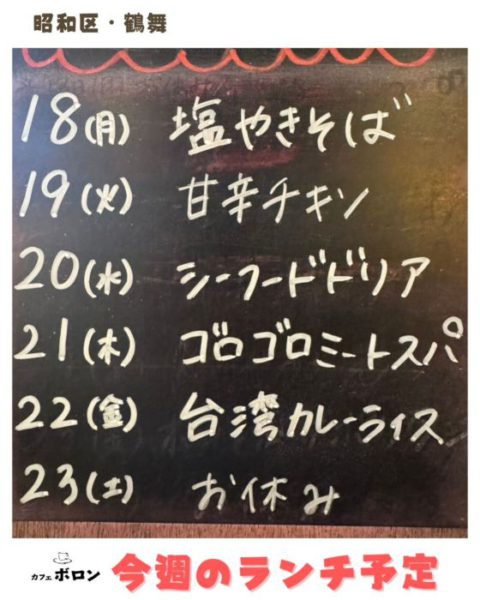 昭和区・鶴舞
18(月) 塩やきそば
19(火) 甘辛チキン
20(水) シーフードドリア
21(木) ゴロゴロミートスパ
22(金) 台湾カレーライス
23(土) お休み
カフェ ボロン 今週のランチ予定